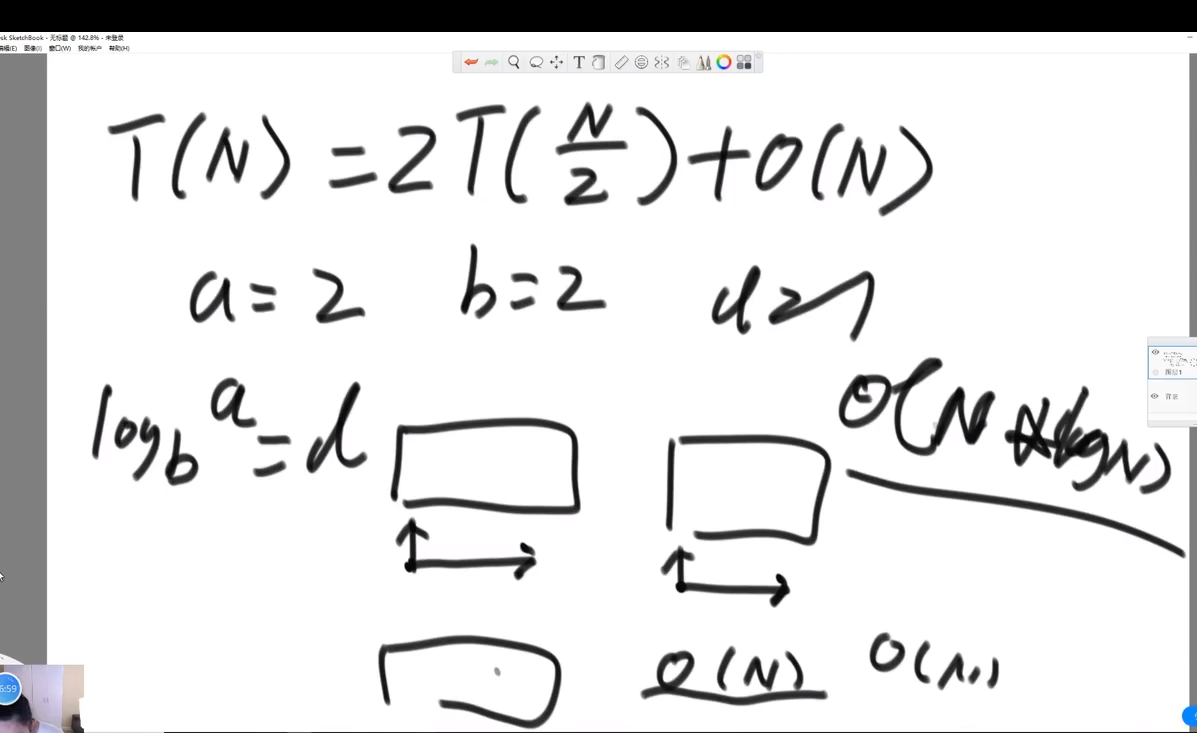 sk SketchBook - 无标题 @ 142.8% - 未登录
编辑(E) 图像(I) 窗口(W) 我的帐户 帮助(H)
T(N) = 2T(N/2) + O(N)
a = 2 b = 2 d = 1
log_b a = d
O(N * logN)
图层1
背景
O(N) O(N)
6:59